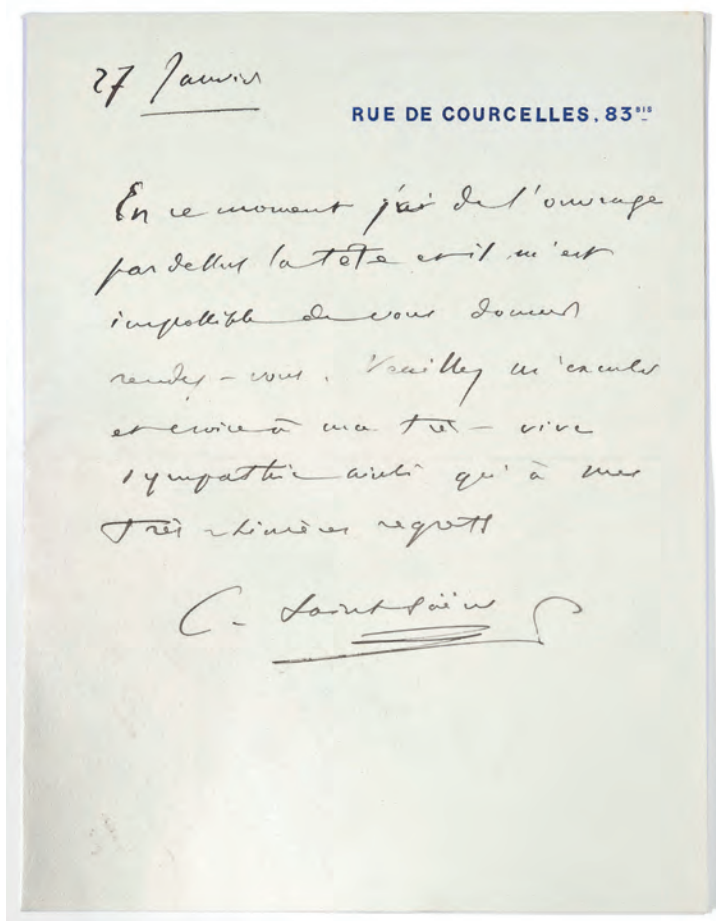 27 Janvier
RUE DE COURCELLES, 83BIS
En ce moment j'ai de l'ouvrage
par dessus la tête et il m'est
impossible de vous donner
rendez-vous. Veuillez m'excuser
et croire à ma très-vive
sympathie ainsi qu'à mes
très sincères regrets
C. Saint-Saëns